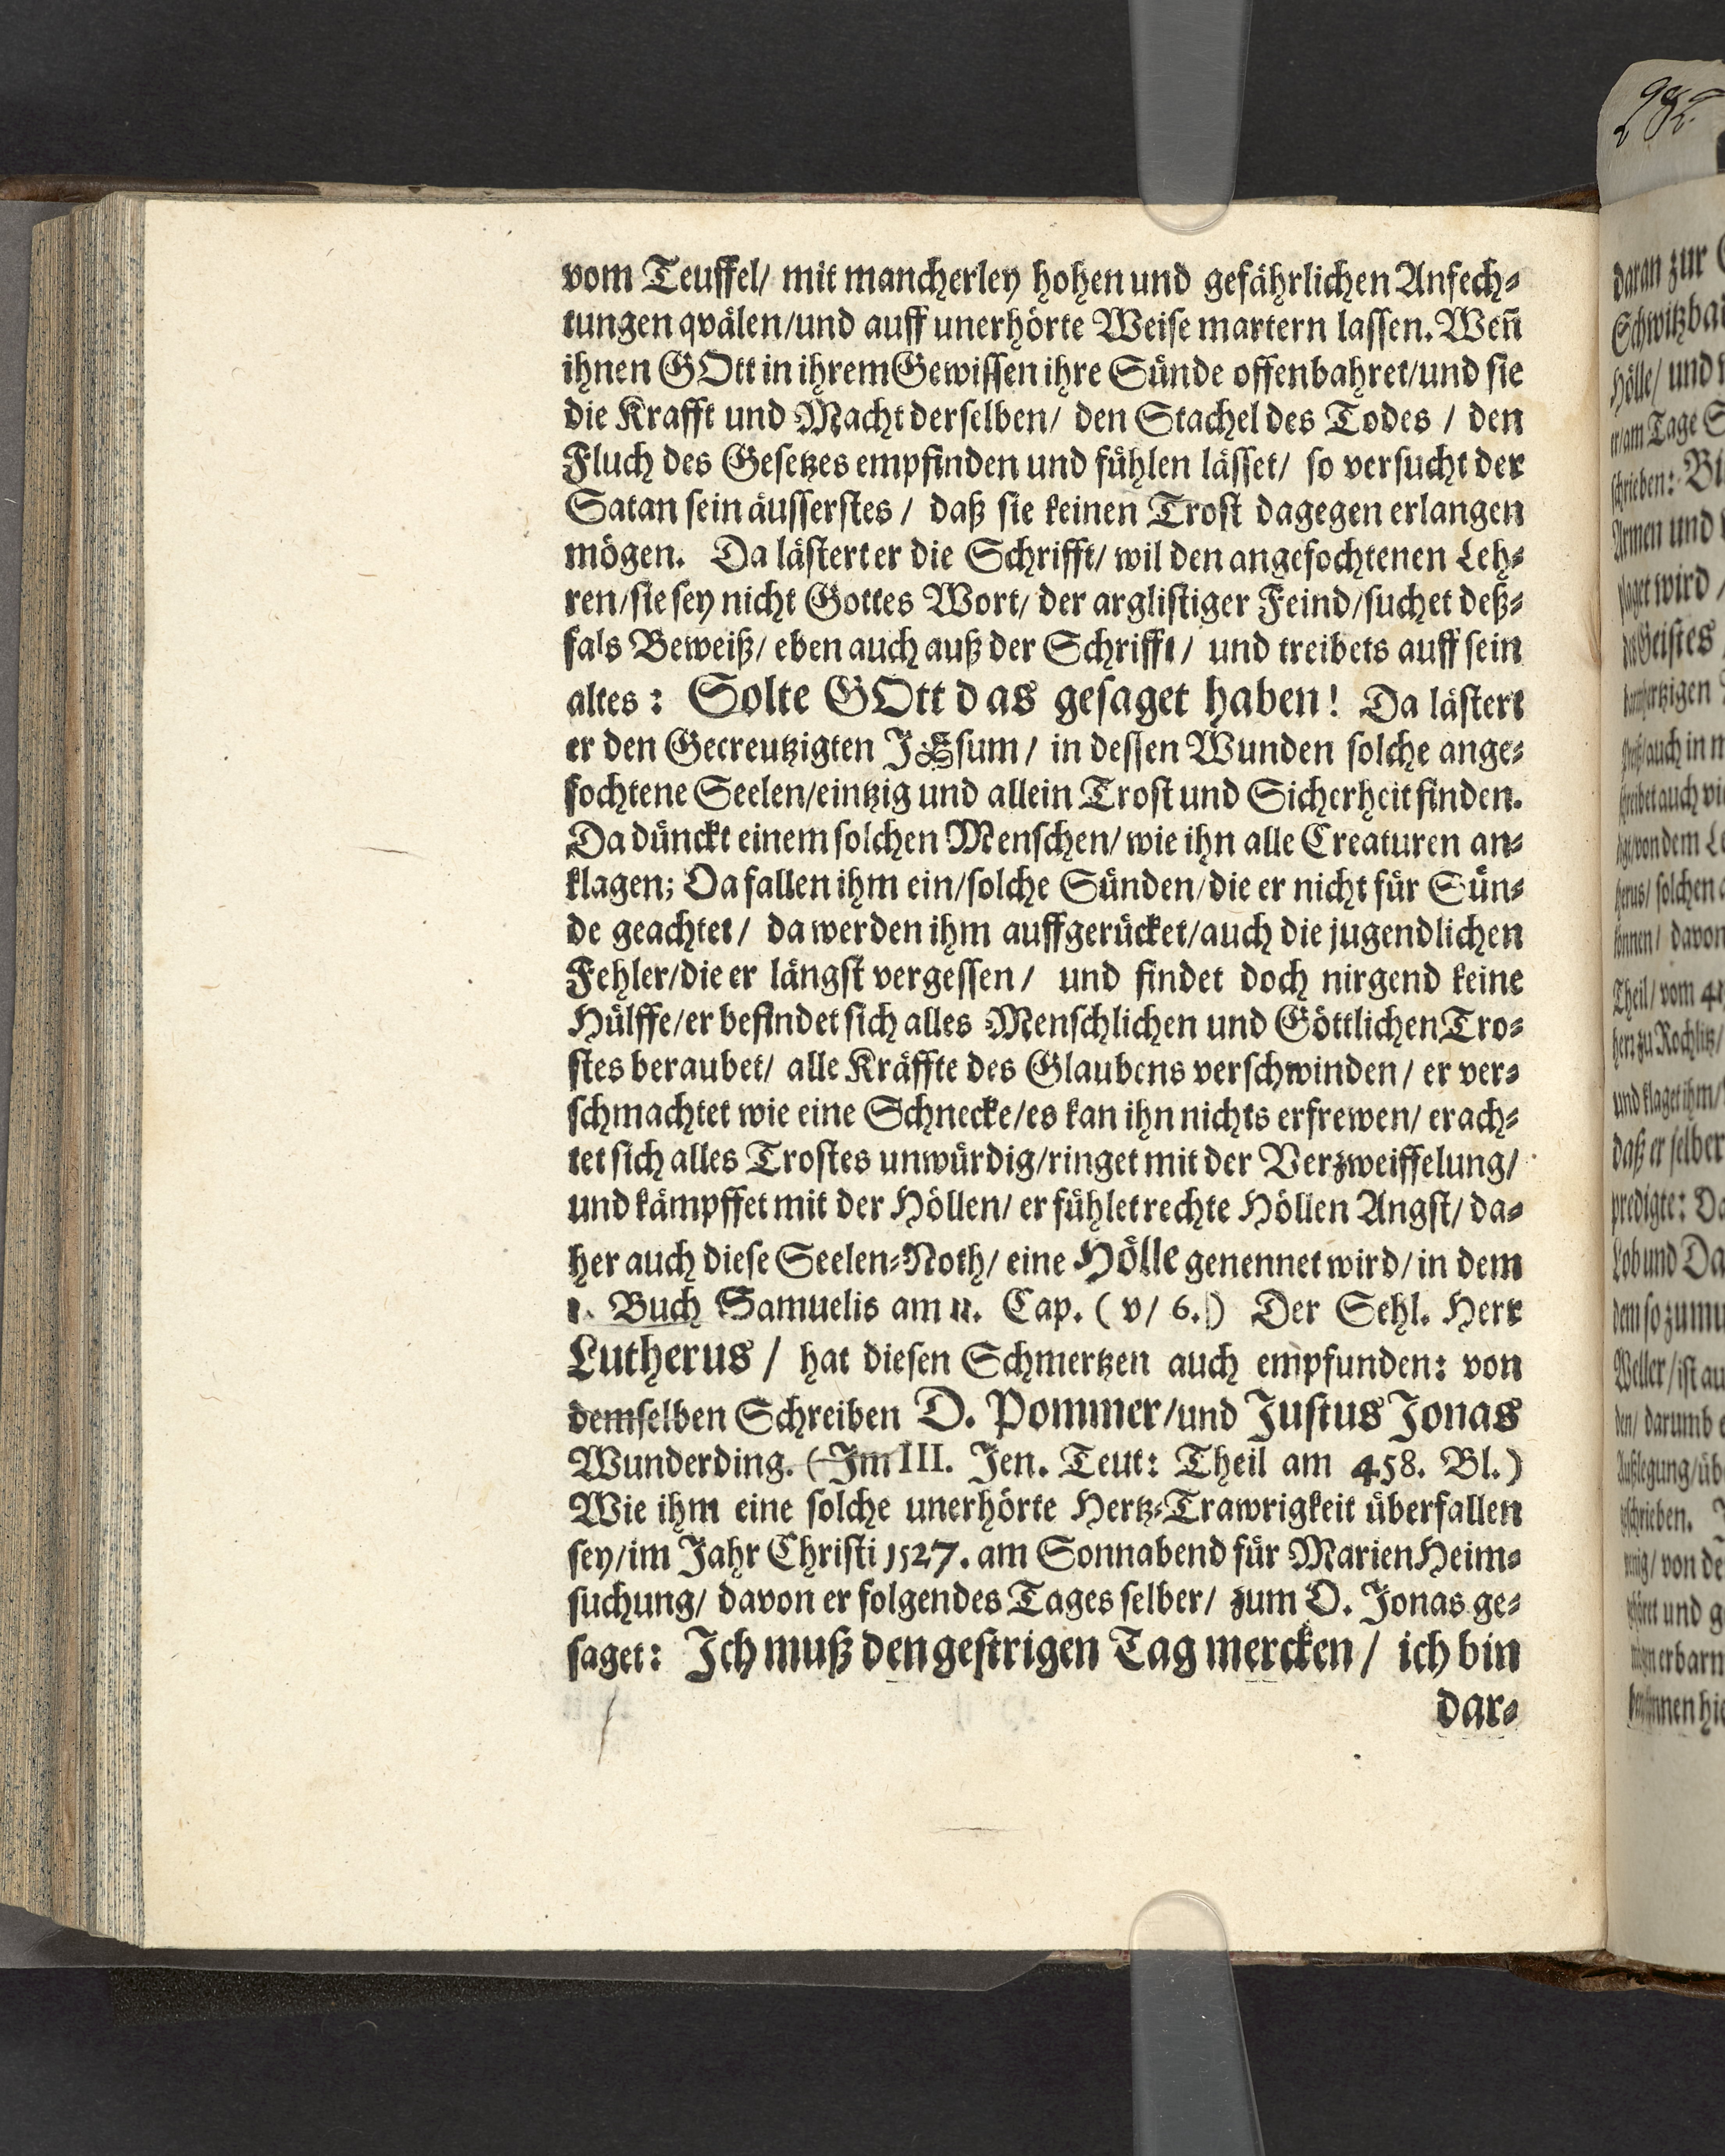 vom Teuffel/ mit mancherley hohen und gefährlichen Anfech-
tungen qvälen/und auff unerhörte Weise martern lassen. Weñ
ihnen GOtt in ihrem Gewissen ihre Sünde offenbahret/und sie
die Krafft und Macht derselben/ den Stachel des Todes / den
Fluch des Gesetzes empfinden und fühlen lässet/ so versucht der
Satan sein äusserstes / daß sie keinen Trost dagegen erlangen
mögen. Da lästert er die Schrifft/ wil den angefochtenen Leh-
ren/sie sey nicht Gottes Wort/ der arglistiger Feind/suchet deß-
fals Beweiß/ eben auch auß der Schrifft/ und treibets auff sein
altes: Solte GOtt das gesaget haben! Da lästert
er den Gecreutzigten JEsum / in dessen Wunden solche ange-
fochtene Seelen/eintzig und allein Trost und Sicherheit finden.
Da dünckt einem solchen Menschen/ wie ihn alle Creaturen an-
klagen; Da fallen ihm ein/solche Sünden/die er nicht für Sün-
de geachtet/ da werden ihm auffgerücket/auch die jugendlichen
Fehler/die er längst vergessen / und findet doch nirgend keine
Hülffe/er befindet sich alles Menschlichen und Göttlichen Tro-
stes beraubet/ alle Kräffte des Glaubens verschwinden / er ver-
schmachtet wie eine Schnecke/es kan ihn nichts erfrewen/ erach-
tet sich alles Trostes unwürdig/ringet mit der Verzweiffelung/
und kämpffet mit der Höllen/ er fühlet rechte Höllen Angst/ da-
her auch diese Seelen-Noth/ eine Hölle genennet wird/ in dem
1. Buch Samuelis am 11. Cap. ( v/ 6.) Der Sehl. Herr
Lutherus / hat diesen Schmertzen auch empfunden: von
demselben Schreiben D. Pommer/und Justus Jonas
Wunderding. (Im III. Jen. Teut: Theil am 458. Bl.)
Wie ihm eine solche unerhörte Hertz-Trawrigkeit überfallen
sey/im Jahr Christi 1527. am Sonnabend für Marien Heim-
suchung/ davon er folgendes Tages selber/ zum D. Jonas ge-
saget: Ich muß den gestrigen Tag mercken / ich bin
dar-
daran zur
Hölle/ und
er/am Tage
schrieben:
Armen und
wird /
Geistes
auch in
von dem
solchen
davon
Theil/ vom
zu Rochlitz/
und klaget ihm/
daß er selber
predigte:
Lob und
dem so zumu
Weller/ist au
den/ darumb
schrieben.
von de
und
erbarm